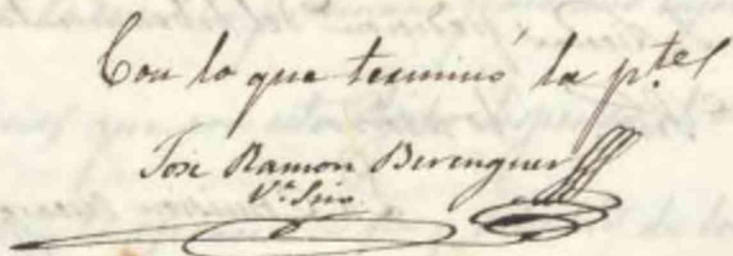 Con lo que terminó la p.te
Jose Ramon Berenguer
V.e Srio.